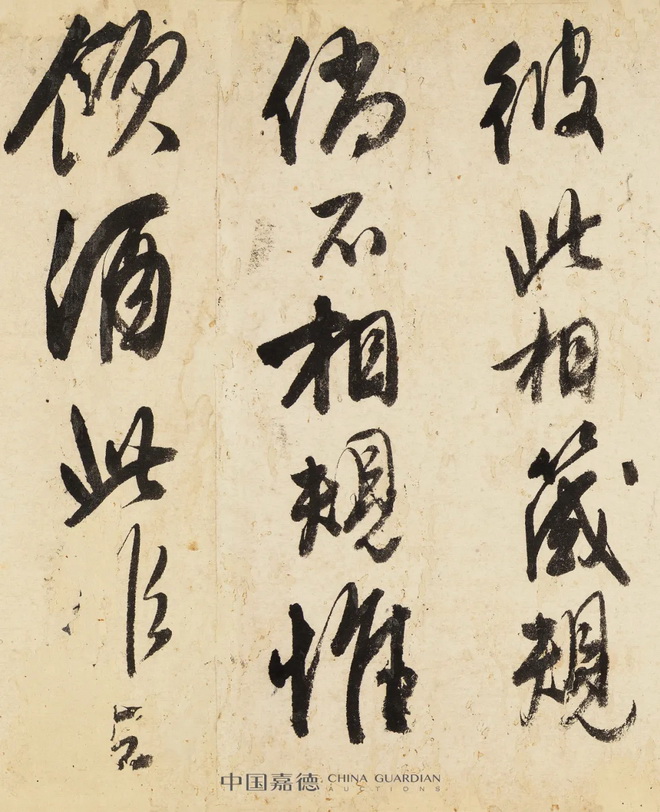 彼此相箴規
倘不相規惟
飲酒此
中国嘉德·CHINA GUARDIAN
AUCTIONS